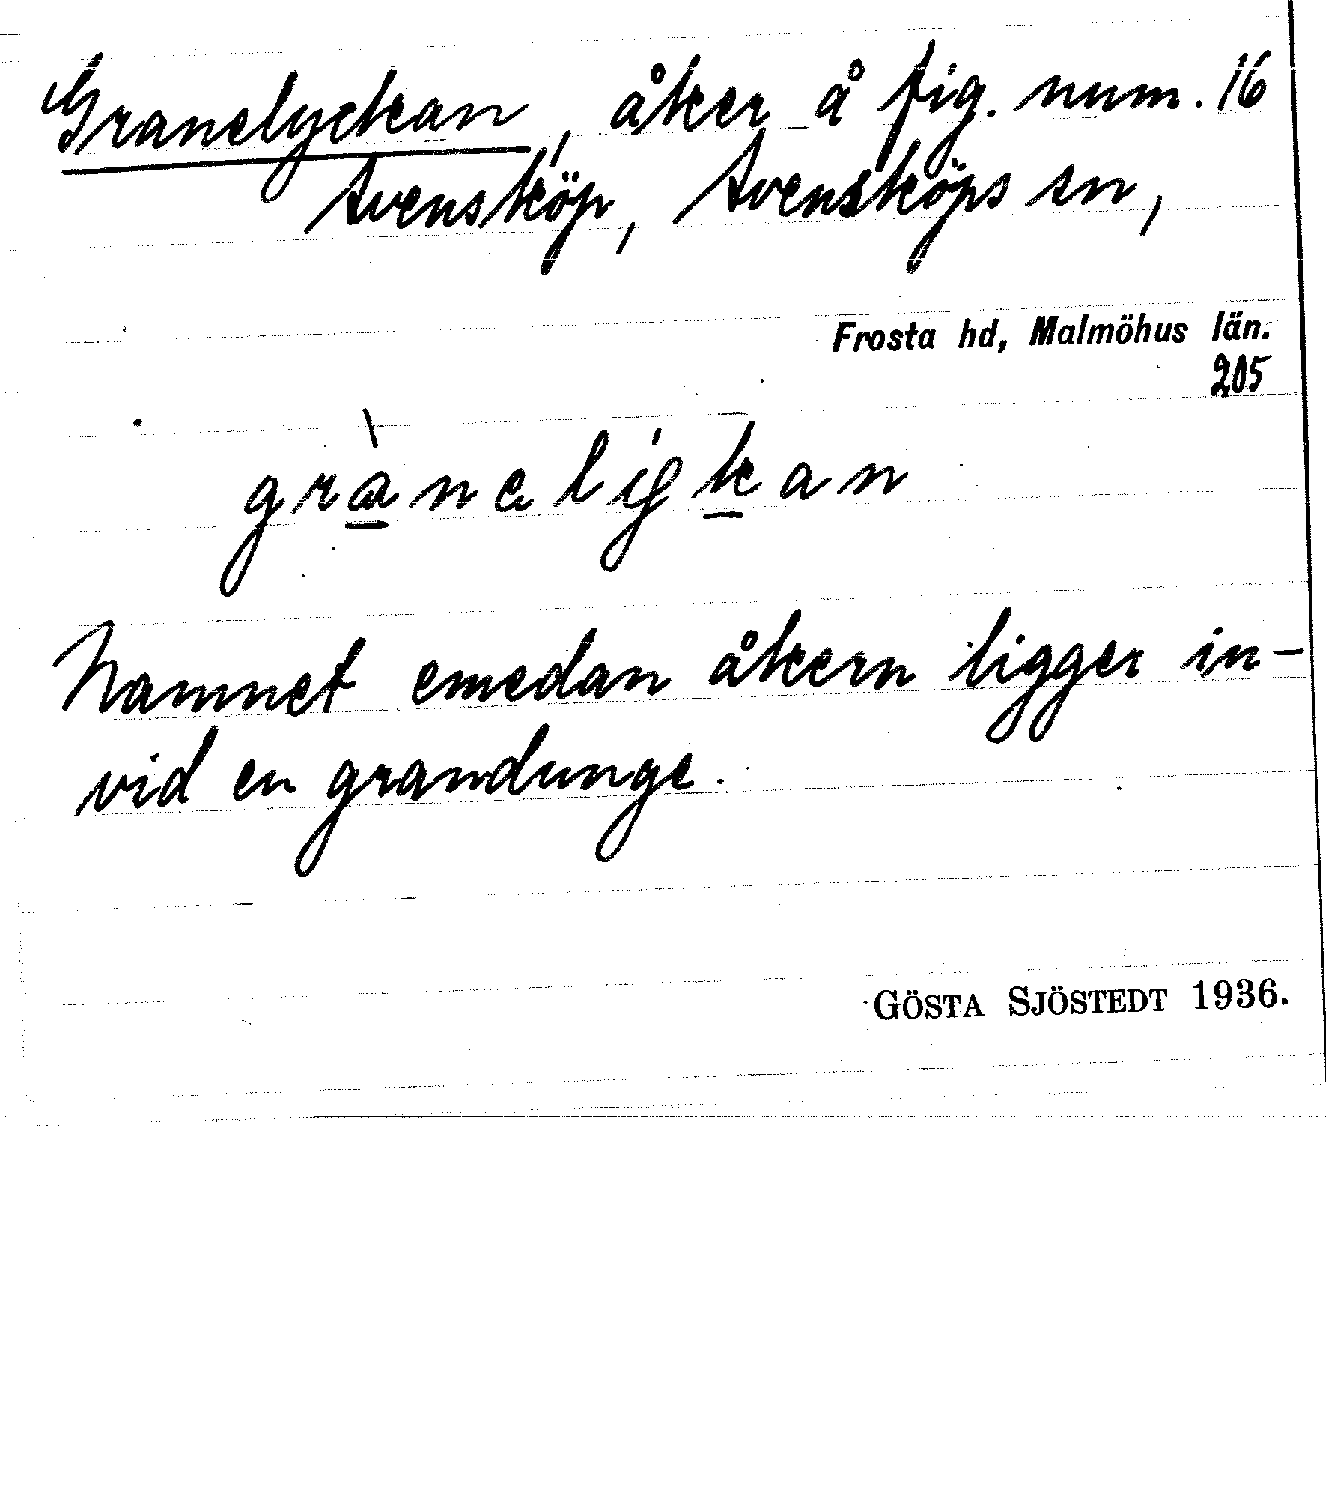 Granelyckan, åker å fig. num. 16
Svensköp, Svensköps sn,
Frosta hd, Malmöhus län.
205
gràneligkan
Namnet emedan åkern ligger in-
vid en grandunge.
GÖSTA SJÖSTEDT 1936.